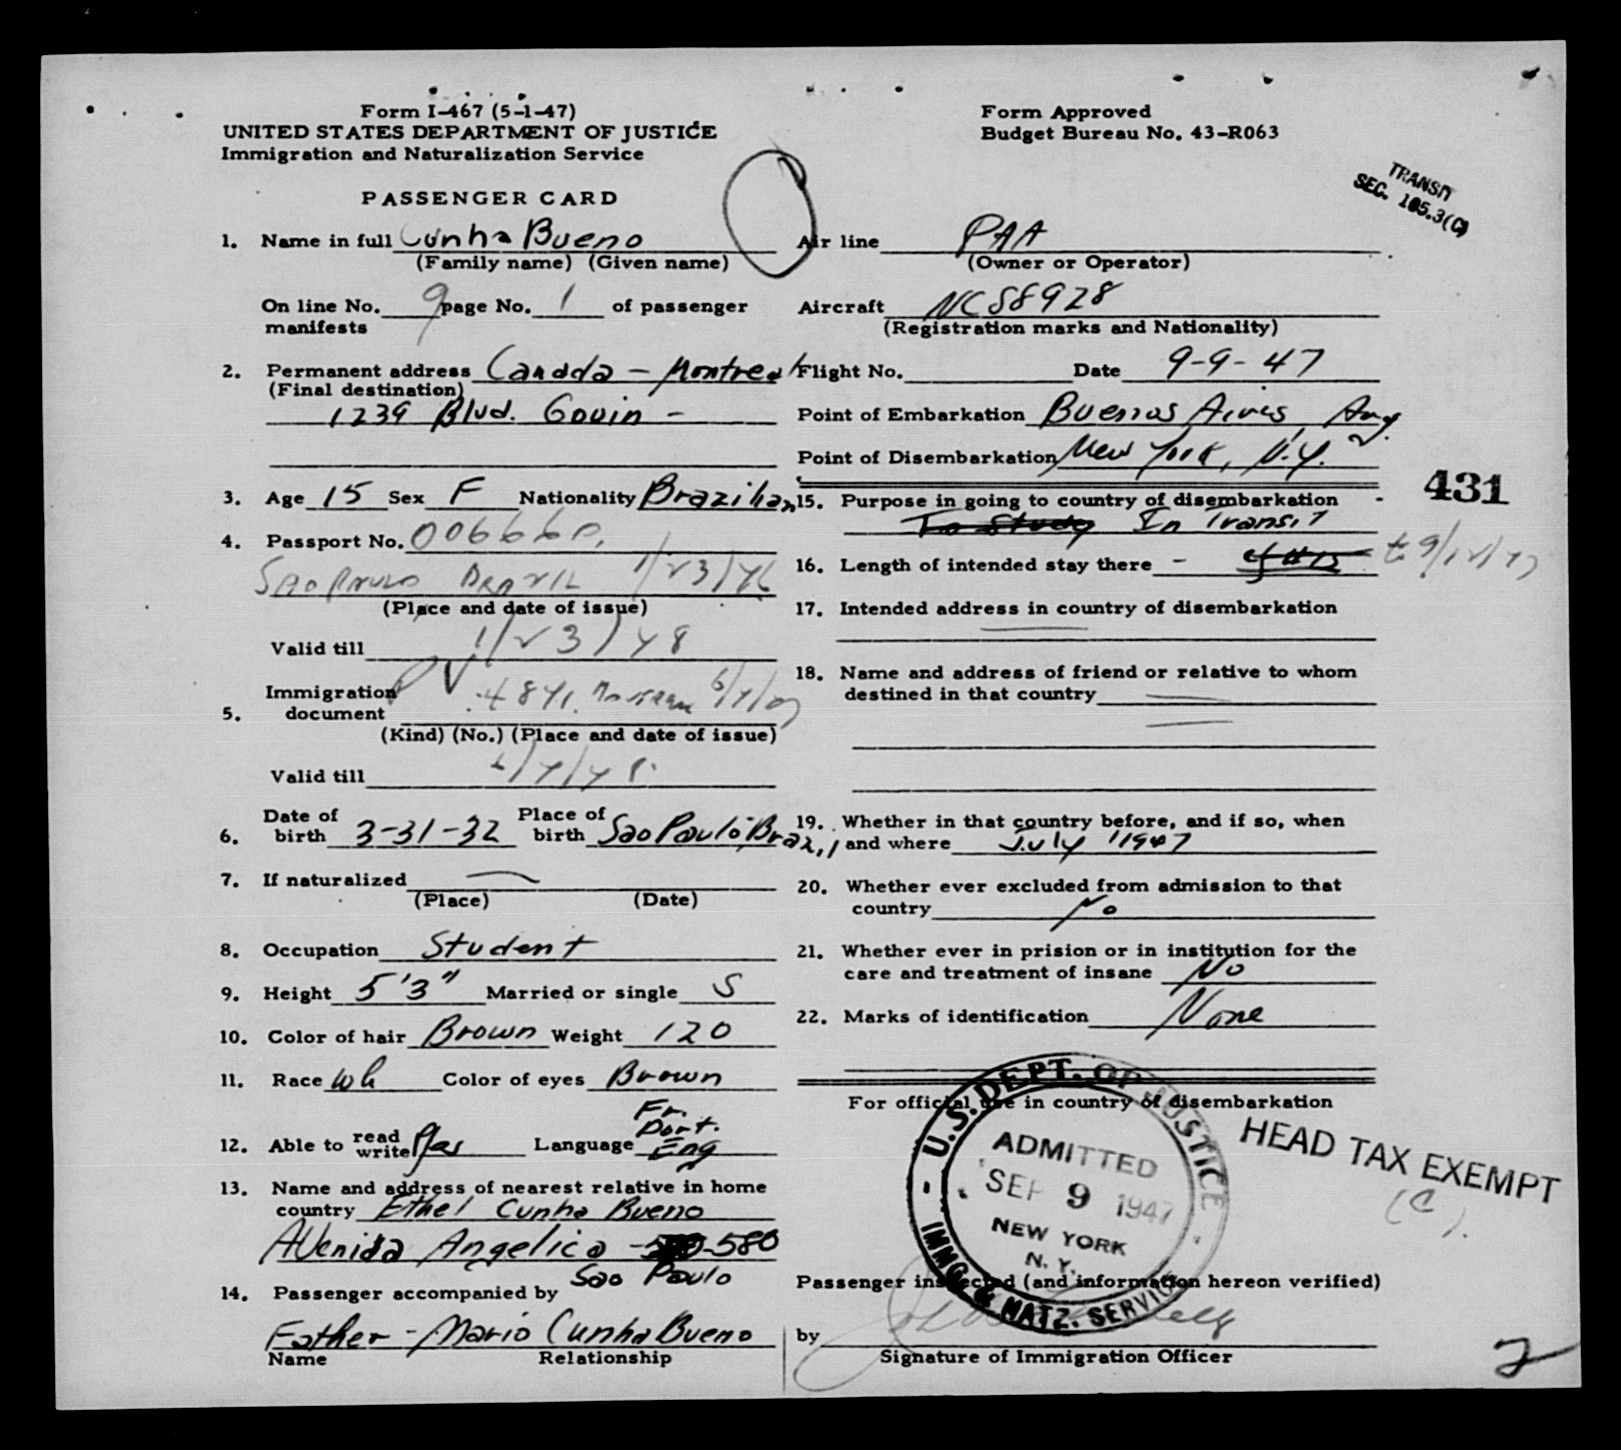 Form I-467 (5-1-47)
UNITED STATES DEPARTMENT OF JUSTICE
Immigration and Naturalization Service
Form Approved
Budget Bureau No. 43-R063
TRANSIT
SEC. 105.3(C)
PASSENGER CARD
1. Name in full Cunha Bueno
(Family name) (Given name)
On line No. 9 page No. 1 of passenger
manifests
2. Permanent address Canada - Montreal
(Final destination)
1239 Blvd. Gouin -
3. Age 15 Sex F Nationality Brazilian
4. Passport No. 006660.
Sao Paulo Brazil 1/23/46
(Place and date of issue)
Valid till 1/23/48
Immigration PV
5. document 4841.
(Kind) (No.) (Place and date of issue)
Valid till
Date of Place of
6. birth 3-31-32 birth Sao Paulo, Brazil
7. If naturalized —
(Place) (Date)
8. Occupation Student
9. Height 5'3" Married or single S
10. Color of hair Brown Weight 120
11. Race wh Color of eyes Brown
Fr.
Port.
12. Able to read write Yes Language Eng
13. Name and address of nearest relative in home
country Ethel Cunha Bueno
Avenida Angelica - 580
Sao Paulo
14. Passenger accompanied by
Father - Mario Cunha Bueno
Name Relationship
Air line PAA
(Owner or Operator)
Aircraft NC88928
(Registration marks and Nationality)
Flight No. Date 9-9-47
Point of Embarkation Buenos Aires, Arg.
Point of Disembarkation New York, N.Y.
431
15. Purpose in going to country of disembarkation -
To Study In Transit
16. Length of intended stay there -
17. Intended address in country of disembarkation
18. Name and address of friend or relative to whom
destined in that country
19. Whether in that country before, and if so, when
and where July 1947
20. Whether ever excluded from admission to that
country No
21. Whether ever in prision or in institution for the
care and treatment of insane No
22. Marks of identification None
For official use in country of disembarkation
U.S. DEPT. OF JUSTICE
ADMITTED
SEP 9 1947
NEW YORK
N. Y.
IMMG. & NATZ. SERVICE
HEAD TAX EXEMPT
(C).
Passenger inspected (and information hereon verified)
by
Signature of Immigration Officer
2